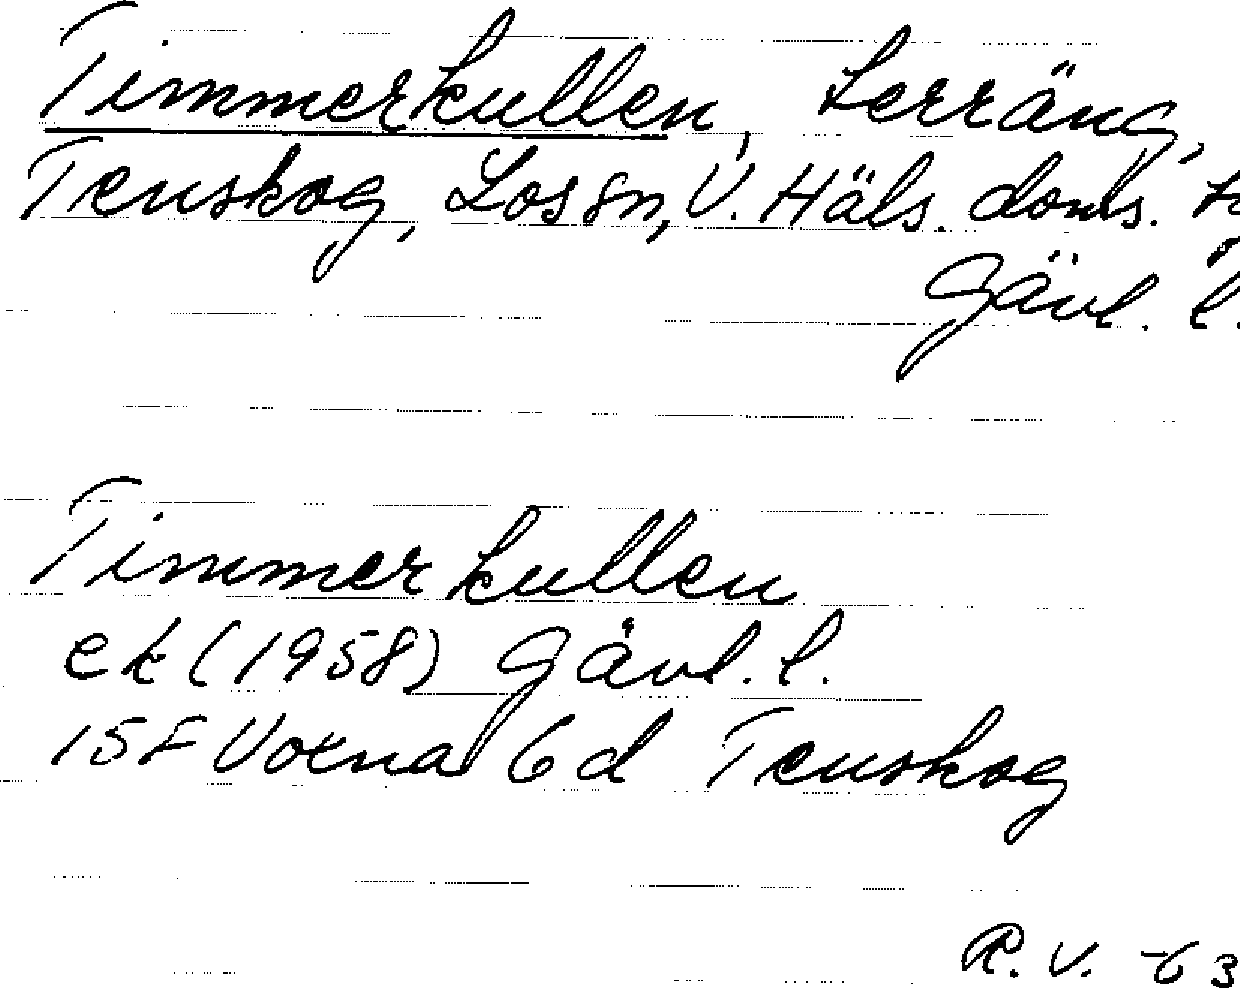 Timmerkullen, terräng,
Tenskog, Los sn, V. Häls. doms.
Gävl. l.
Timmerkullen
ek (1958) Gävl. l.
15F Voxna 6d Tenskog
R. V. -63